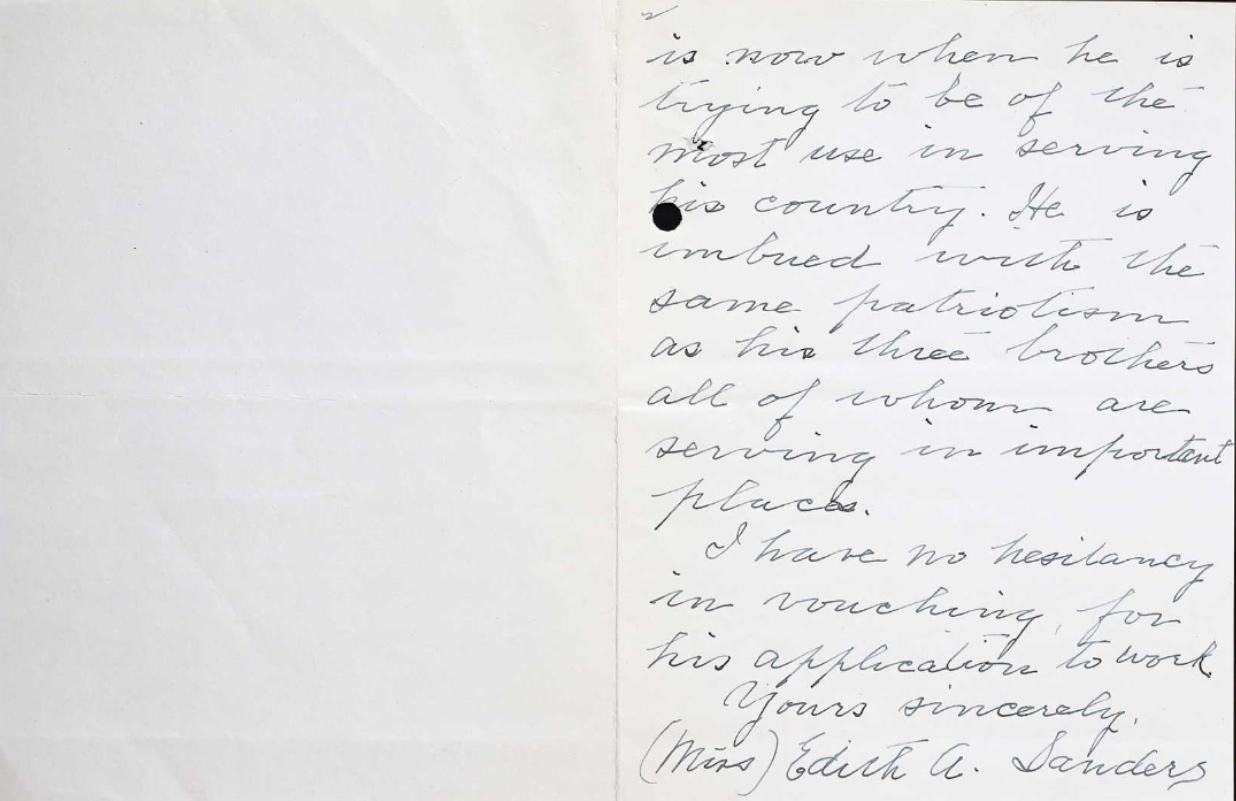 2
is now when he is
trying to be of the
most use in serving
his country. He is
imbued with the
same patriotism
as his three brothers
all of whom are
serving in important
places.
I have no hesitancy
in vouching for
his application to work
Yours sincerely,
(Miss) Edith A. Sanders